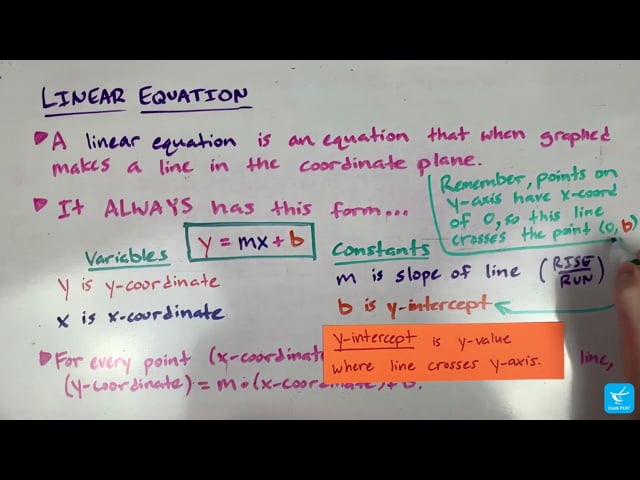 LINEAR EQUATION
A linear equation is an equation that when graphed
makes a line in the coordinate plane.
Remember, points on
y-axis have x-coord
of 0, so this line
crosses the point (0, b)
It ALWAYS has this form...
y = mx + b
Variables
y is y-coordinate
x is x-coordinate
Constants
m is slope of line (RISE/RUN)
b is y-intercept
y-intercept is y-value
where line crosses y-axis.
For every point (x-coordinat line,
(y-coordinate) = m • (x-coordinate) + b.
Crash PCAT